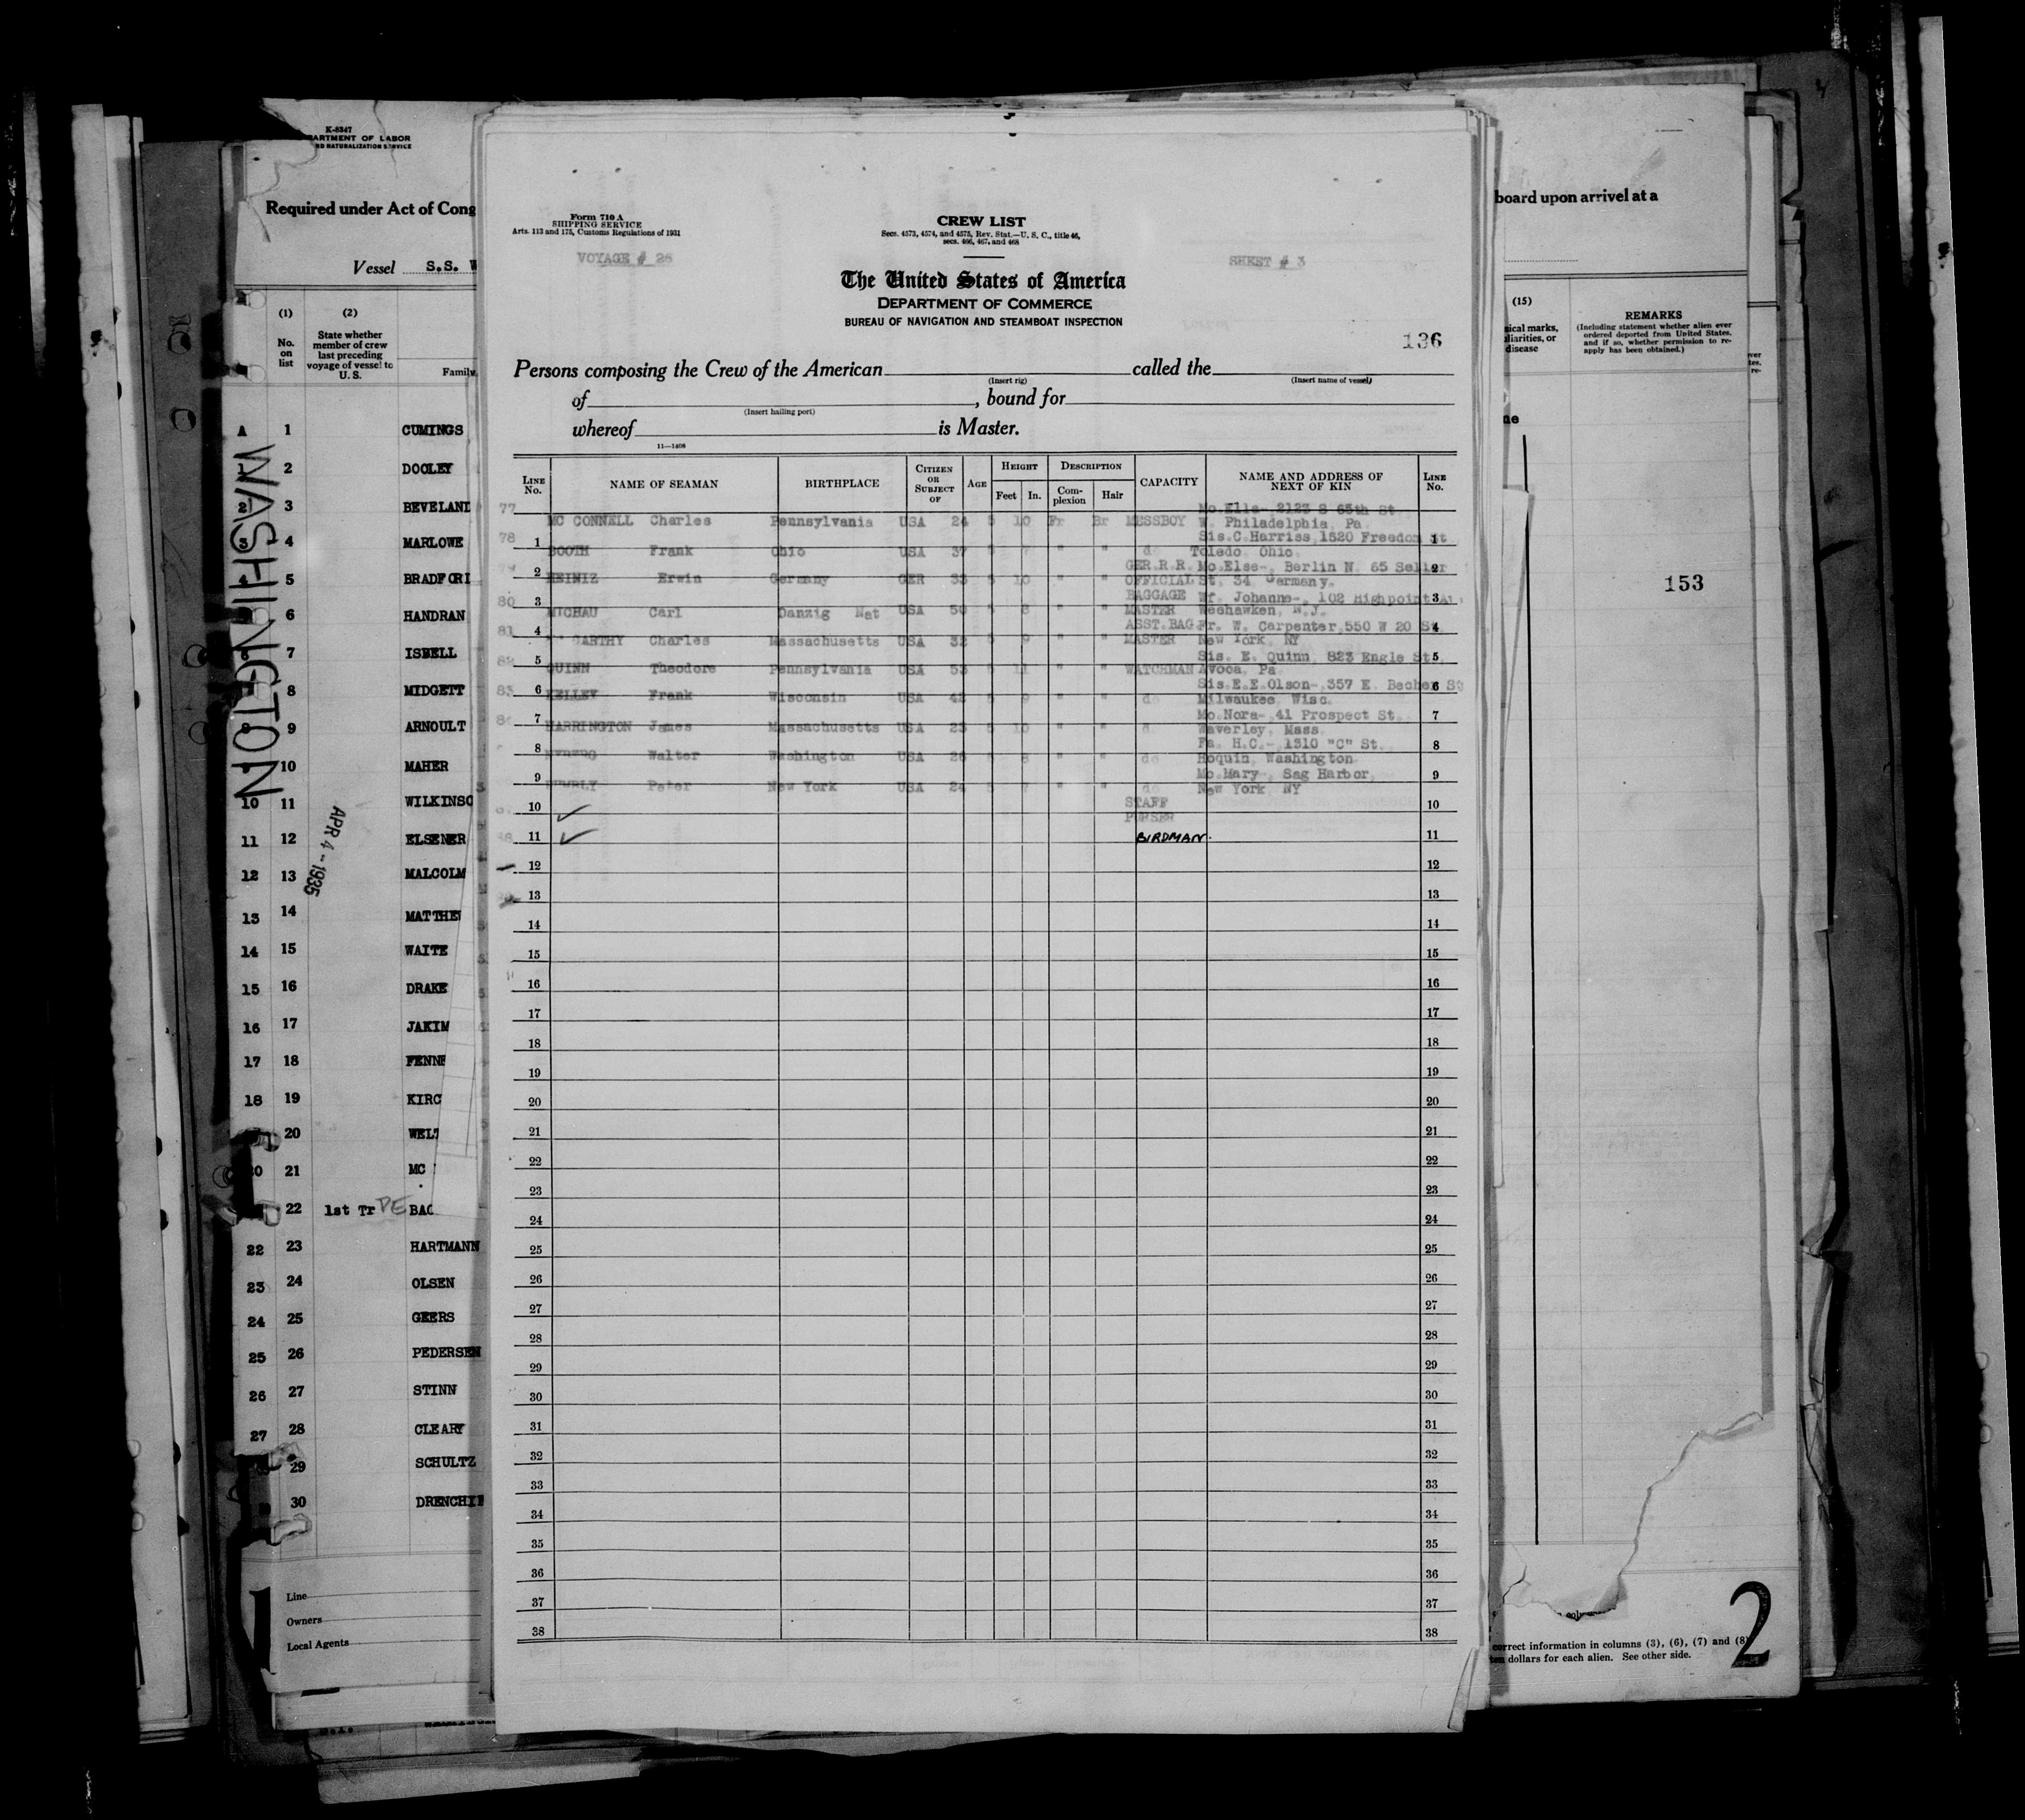 K-8347
ARTMENT OF LABOR
ND NATURALIZATION SERVICE
Required under Act of Cong
Vessel S.S. W
(1) (2)
No. on list
State whether member of crew last preceding voyage of vessel to U. S.
Family
WASHINGTON
APR 4 - 1935
A 1 CUMINGS
2 DOOLEY
2 3 BEVELAND
3 4 MARLOWE
4 5 BRADFORD
6 HANDRAN
6 7 ISBELL
8 MIDGETT
8 9 ARNOULT
10 MAHER
10 11 WILKINSO
11 12 ELSENER
12 13 MALCOLM
13 14 MATTHE
14 15 WAITE
15 16 DRAKE
16 17 JAKIM
17 18 FENNE
18 19 KIRC
20 WEL
21 MC
22 1st Tr BAC
22 23 HARTMANN
23 24 OLSEN
24 25 GEERS
25 26 PEDERSEN
26 27 STINN
27 28 CLEARY
29 SCHULTZ
30 DRENCHI
Line
Owners
Local Agents
Form 710 A
SHIPPING SERVICE
Arts. 113 and 175, Customs Regulations of 1931
VOYAGE # 26
CREW LIST
Secs. 4573, 4574, and 4575, Rev. Stat.—U. S. C., title 46,
secs. 466, 467, and 468
SHEET # 3
The United States of America
DEPARTMENT OF COMMERCE
BUREAU OF NAVIGATION AND STEAMBOAT INSPECTION
136
Persons composing the Crew of the American called the
(Insert rig) (Insert name of vessel)
of , bound for
(Insert hailing port)
whereof is Master.
11—1408
LINE No. NAME OF SEAMAN BIRTHPLACE CITIZEN OR SUBJECT OF AGE HEIGHT Feet In. DESCRIPTION Complexion Hair CAPACITY NAME AND ADDRESS OF NEXT OF KIN LINE No.
77 Mo.Elle- 2123 S 65th St
MC CONNELL Charles Pennsylvania USA 24 5 10 Fr Br MESSBOY W. Philadelphia, Pa
78 1 Sis.C.Harriss,1520 Freedom St 1
BOOTH Frank Ohio USA 37 5 7 " " do Toledo Ohio
2 GER.R.R. Mo.Else-, Berlin N. 65 Seller 2
HEINIZ Erwin Germany GER 33 5 10 " " OFFICIAL St. 34, Germany.
80 3 BAGGAGE Wf. Johanne-, 102 Highpoint Av. 3
MICHAU Carl Danzig Nat USA 50 5 8 " " MASTER Weehawken, N.J.
81 4 ASST.BAG Fr. W. Carpenter,550 W 20 St 4
CARTHY Charles Massachusetts USA 32 5 9 " " MASTER New York, NY
82 5 Sis. E. Quinn, 823 Engle St 5
QUINN Theodore Pennsylvania USA 53 5 11 " " WATCHMAN Avoca, Pa
83 6 Sis.E.E.Olson-,357 E. Becher St 6
KELLEY Frank Wisconsin USA 42 5 9 " " do Milwaukee, Wisc.
7 Mo.Nora- 41 Prospect St. 7
HARRINGTON James Massachusetts USA 23 5 10 " " d Waverley, Mass
8 Fa. H.C.- 1310 "C" St. 8
Walter Washington USA 26 5 8 " " do Hoquin, Washington
9 Mo.Mary-, Sag Harbor, 9
Peter New York USA 24 5 7 " " do New York, NY
10 ✓ STAFF PURSER 10
11 ✓ BIRDMAN. 11
12 12
13 13
14 14
15 15
16 16
17 17
18 18
19 19
20 20
21 21
22 22
23 23
24 24
25 25
26 26
27 27
28 28
29 29
30 30
31 31
32 32
33 33
34 34
35 35
36 36
37 37
38 38
board upon arrival at a
(15)
ical marks,
liarities, or
disease
REMARKS
(Including statement whether alien ever
ordered deported from United States,
and if so, whether permission to re-
apply has been obtained.)
ne
153
correct information in columns (3), (6), (7) and (8)
ten dollars for each alien. See other side.
2